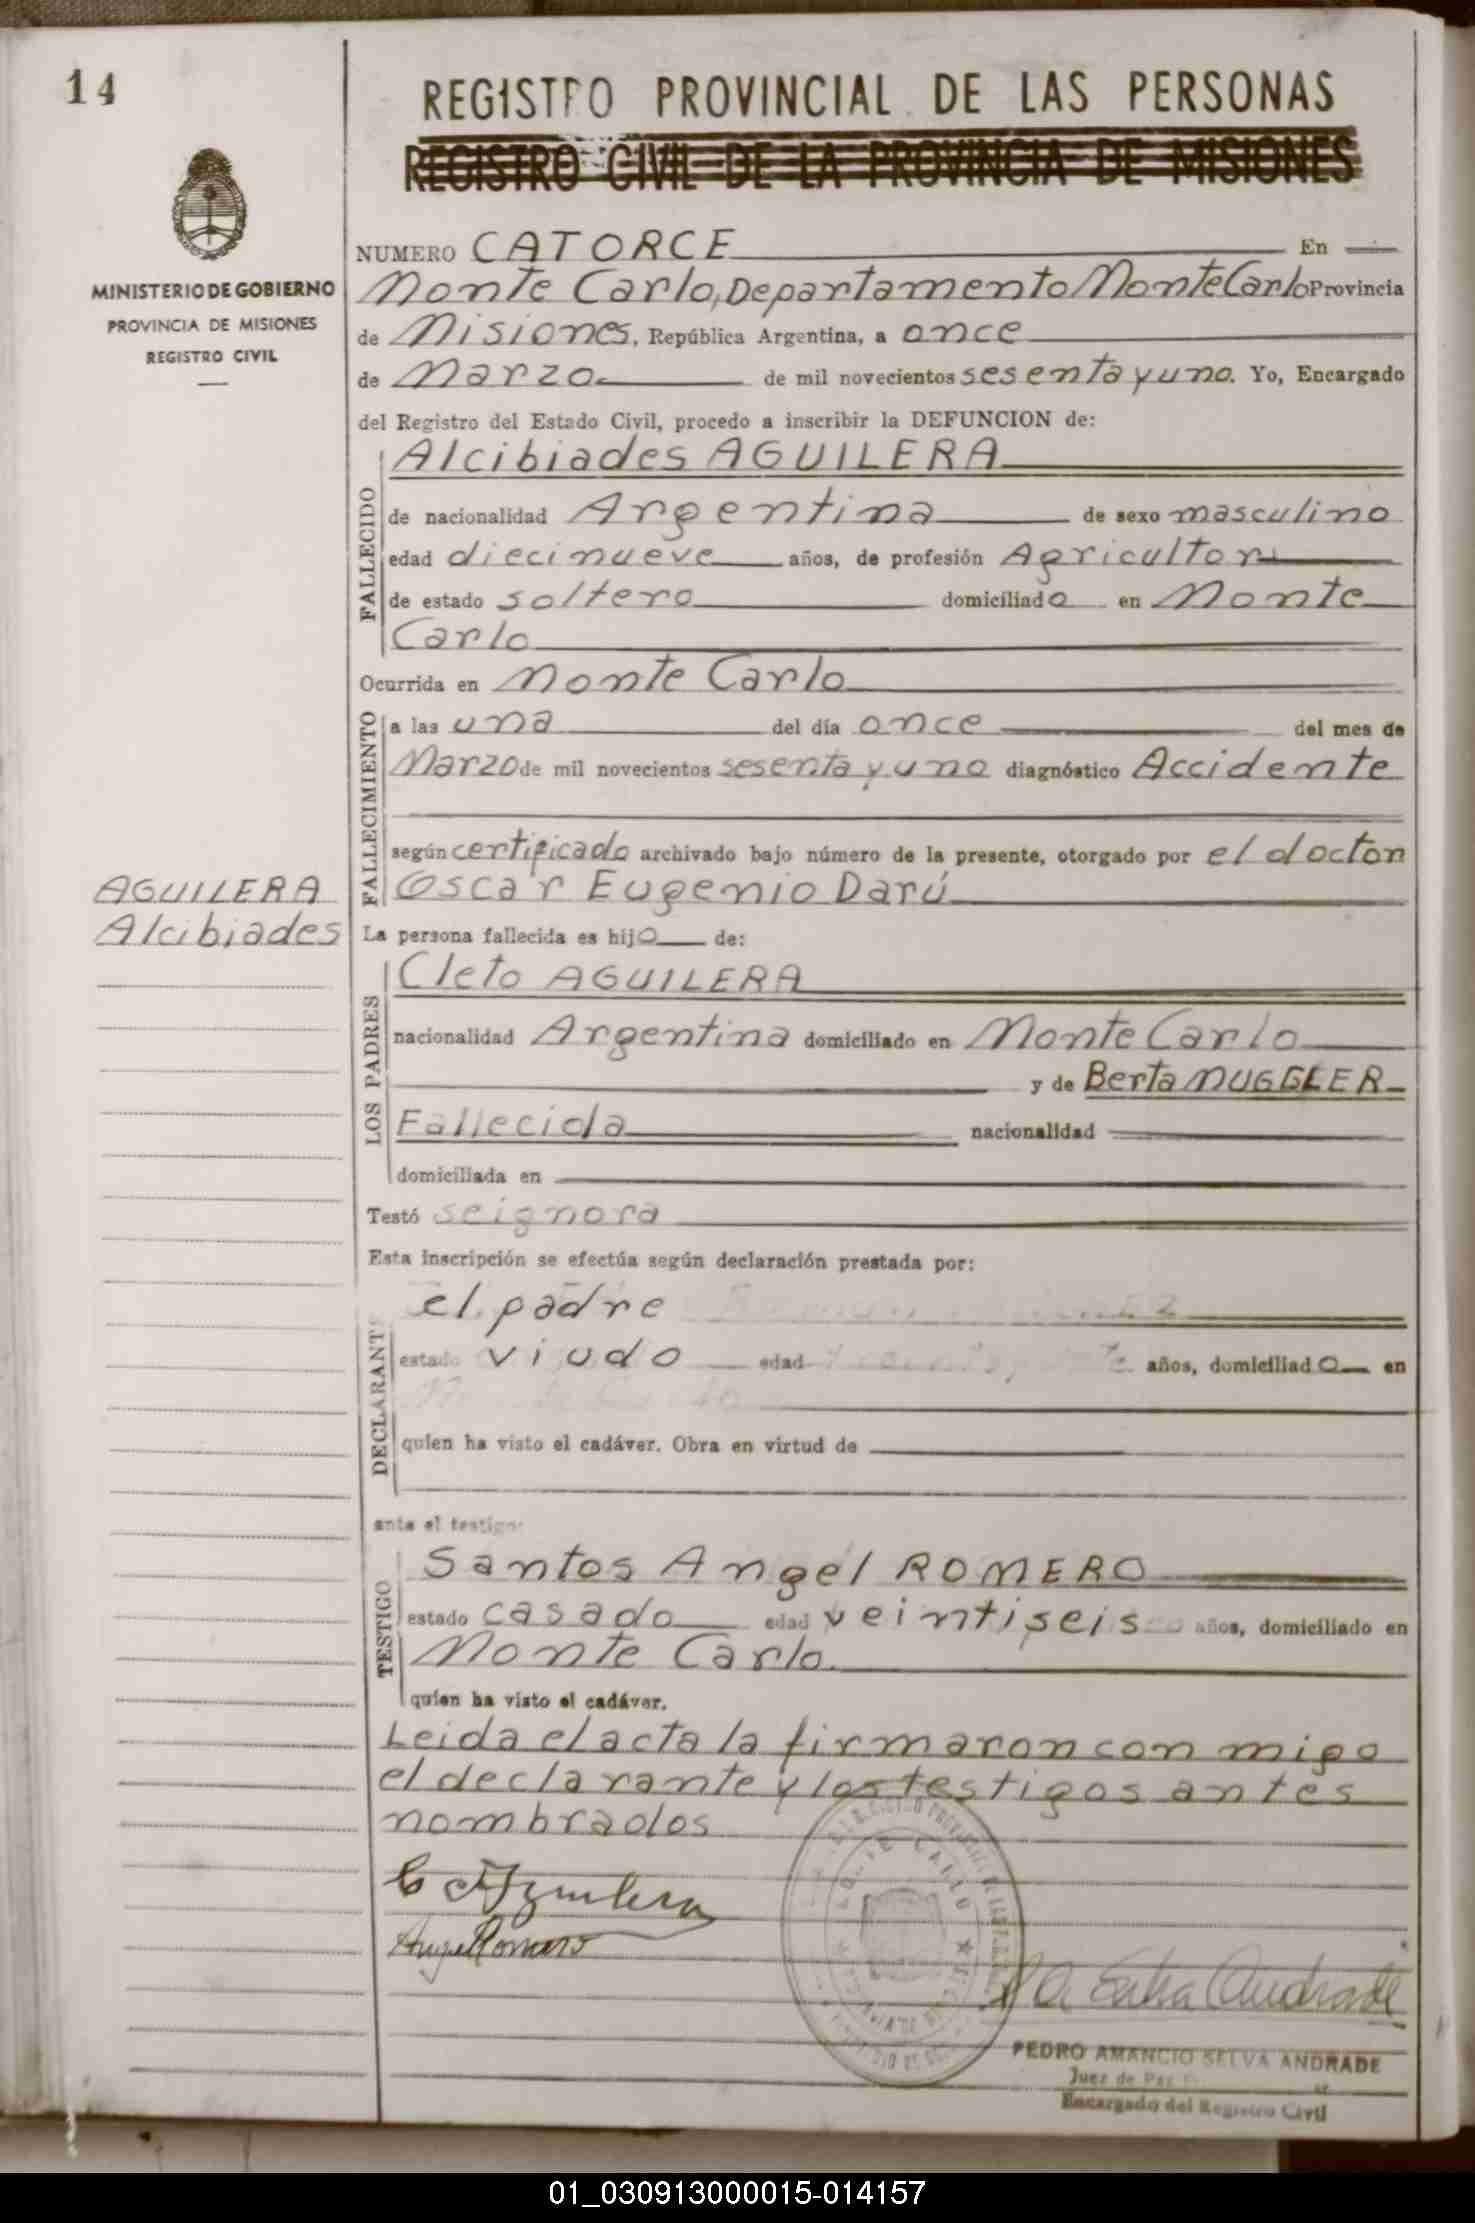 14
REGISTRO PROVINCIAL DE LAS PERSONAS
REGISTRO CIVIL DE LA PROVINCIA DE MISIONES
MINISTERIO DE GOBIERNO
PROVINCIA DE MISIONES
REGISTRO CIVIL
NUMERO CATORCE En
Monte Carlo, Departamento Monte Carlo Provincia
de Misiones, República Argentina, a once
de Marzo de mil novecientos sesenta y uno. Yo, Encargado
del Registro del Estado Civil, procedo a inscribir la DEFUNCION de:
FALLECIDO
Alcibiades AGUILERA
de nacionalidad Argentina de sexo masculino
edad diecinueve años, de profesión Agricultor
de estado soltero domiciliado en Monte
Carlo
Ocurrida en Monte Carlo
FALLECIMIENTO
a las una del día once del mes de
Marzo de mil novecientos sesenta y uno diagnóstico Accidente
según certificado archivado bajo número de la presente, otorgado por el doctor
Oscar Eugenio Darú
AGUILERA
Alcibiades
La persona fallecida es hijo de:
LOS PADRES
Cleto AGUILERA
nacionalidad Argentina domiciliado en Monte Carlo
y de Berta NUGGLER
Fallecida nacionalidad
domiciliada en
Testó seignora
Esta inscripción se efectúa según declaración prestada por:
DECLARANTE
el padre
estado viudo edad años, domiciliado en
quien ha visto el cadáver. Obra en virtud de
ante el testigo:
TESTIGO
Santos Angel ROMERO
estado casado edad veintiseis años, domiciliado en
Monte Carlo
quien ha visto el cadáver.
Leida el acta la firmaron con migo
el declarante y los testigos antes
nombrados
C Aguilera
Angel Romero
P A Selva Andrade
PEDRO AMANCIO SELVA ANDRADE
Juez de Paz
Encargado del Registro Civil
01_030913000015-014157